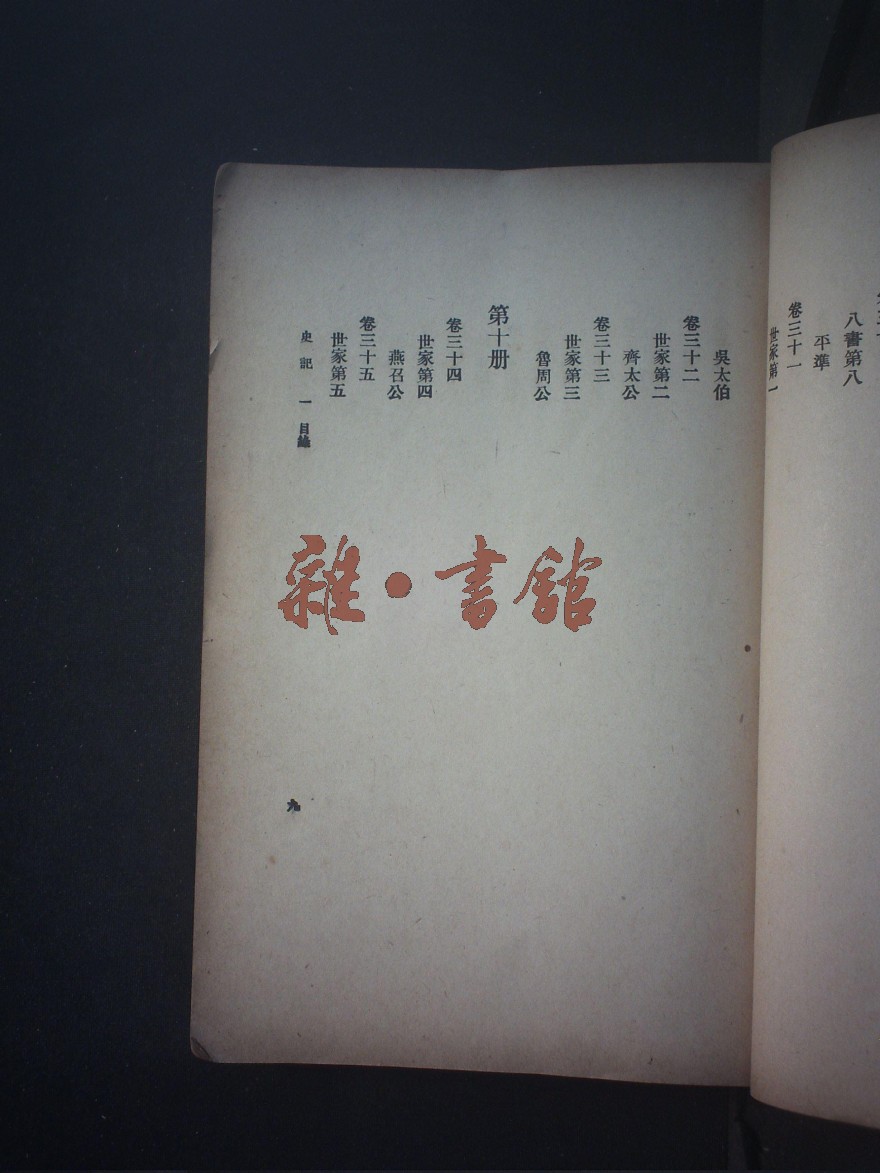 八書第八
平準
卷三十一
世家第一
吳太伯
卷三十二
世家第二
齊太公
卷三十三
世家第三
魯周公
第十册
卷三十四
世家第四
燕召公
卷三十五
世家第五
史記 一 目錄
九
雜·書館